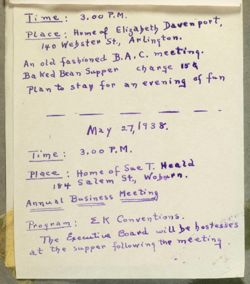 Time: 3.00 P.M.
Place: Home of Elizabeth Davenport,
140 Webster St., Arlington.
An old fashioned B.A.C. meeting.
Baked Bean Supper charge 15¢
Plan to stay for an evening of fun
May 27, 1938.
Time: 3.00 P.M.
Place: Home of Sue T. Heald
184 Salem St., Woburn.
Annual Business Meeting
Program: E.K Conventions.
The Executive Board will be hostesses
at the supper following the meeting.